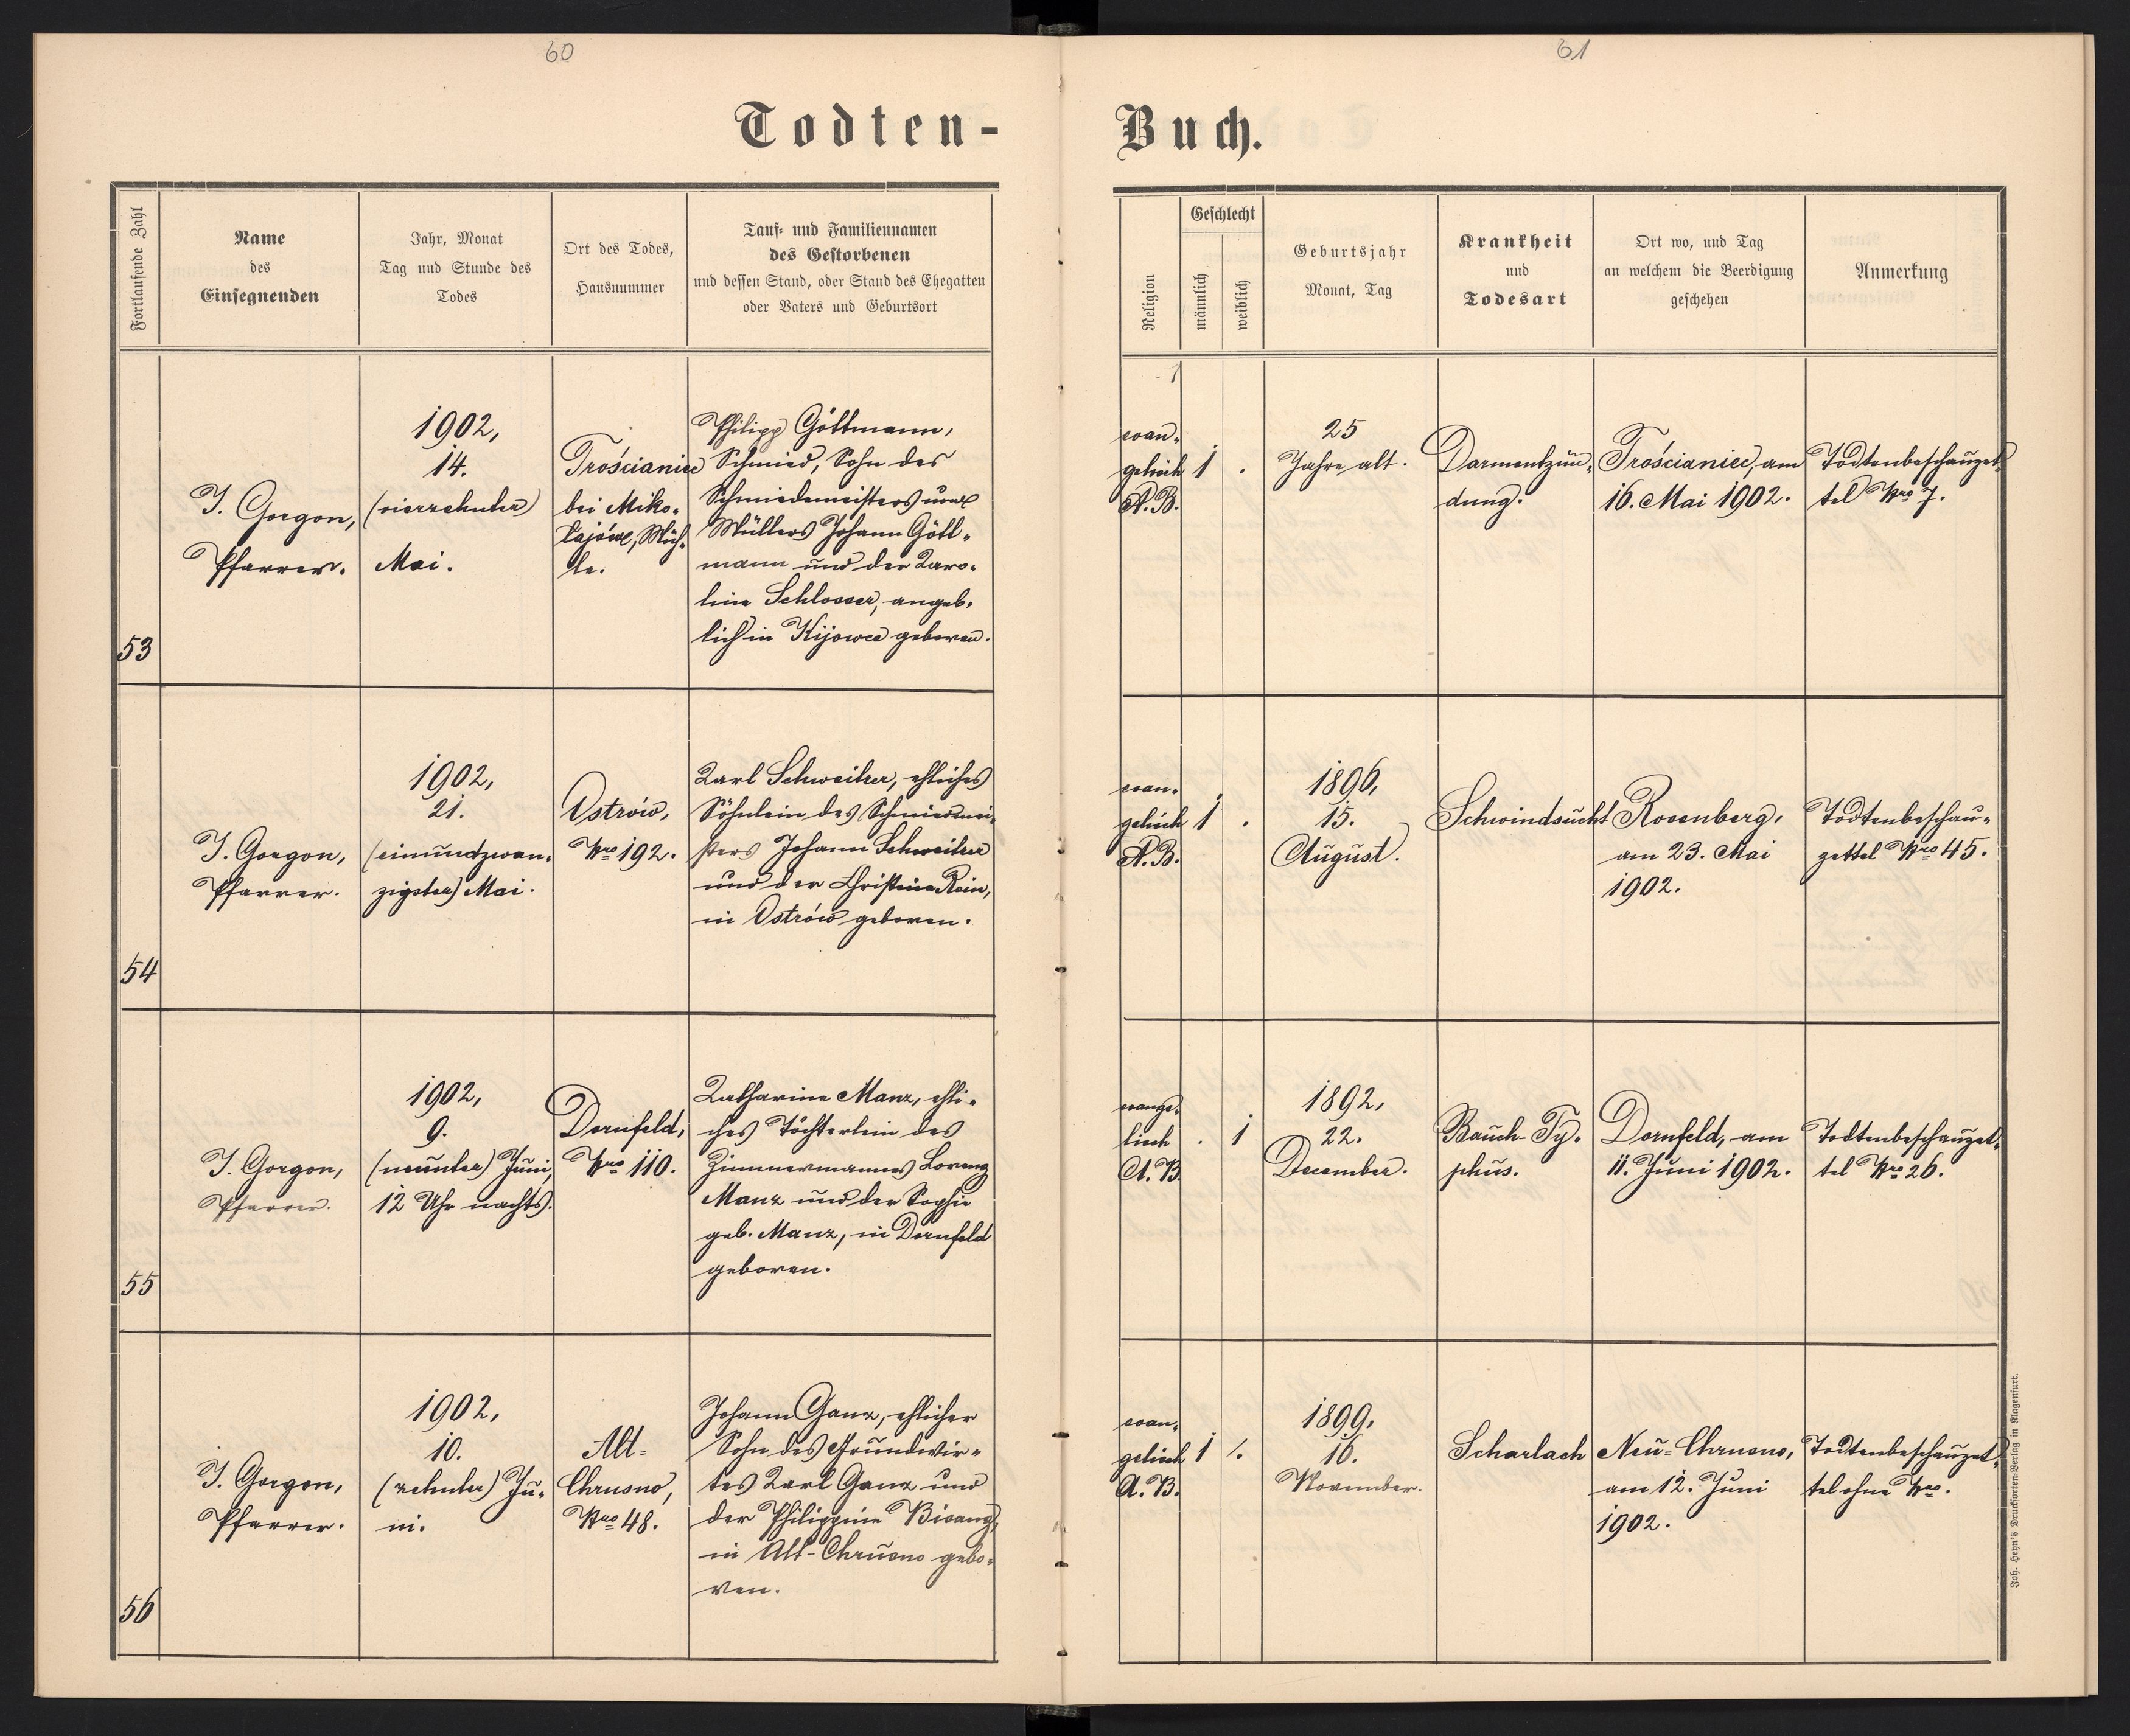 60
61
Todten-
Buch.
Fortlaufende Zahl
Name
des
Einsegnenden
Jahr, Monat
Tag und Stunde des
Todes
Ort des Todes,
Hausnummer
Tauf- und Familiennamen
des Gestorbenen
und dessen Stand, oder Stand des Ehegatten
oder Vaters und Geburtsort
Religion
Geschlecht
männlich
weiblich
Geburtsjahr
Monat, Tag
Krankheit
und
Todesart
Ort wo, und Tag
an welchem die Beerdigung
geschehen
Anmerkung
53
J. Gorgon,
Pfarrer.
1902,
14.
(vierzehnter)
Mai.
Trościaniec
bei Miko-
łajów, Müh-
le.
Philipp Göttmann,
Schmied, Sohn des
Schmiedemeisters und
Müllers Johann Gött-
mann und der Karo-
line Schlosser, angeb-
lich in Kijowce geboren.
evan-
gelisch
A. B.
1
.
25
Jahre alt.
Darmentzün-
dung.
Trościaniec, am
16. Mai 1902.
Todtenbeschauzet-
tel Nro 7.
54
J. Gorgon,
Pfarrer.
1902,
21.
(einundzwan-
zigster) Mai.
Ostrów,
Nro 192.
Karl Schweitzer, ehliches
Söhnlein des Schmiedmei-
sters Johann Schweitzer
und der Christine Rein,
in Ostrów geboren.
evan-
gelisch
A. B.
1
.
1896,
15.
August.
Schwindsucht
Rosenberg,
am 23. Mai
1902.
Todtenbeschau-
zettel Nro 45.
55
J. Gorgon,
Pfarrer.
1902,
9.
(neunter) Juni,
12 Uhr nachts.
Dornfeld,
Nro 110.
Katharine Manz, ehli-
ches Töchterlein des
Zimmermannes Lorenz
Manz und der Sophie
geb. Manz, in Dornfeld
geboren.
evange-
lisch
A. B.
.
1
1892,
22.
December.
Bauch-Ty-
phus.
Dornfeld, am
11. Juni 1902.
Todtenbeschauzet-
tel Nro 26.
56
J. Gorgon,
Pfarrer.
1902,
10.
(zehnter) Ju-
ni.
Alt-
Chrusno,
Nro 48.
Johann Ganz, ehlicher
Sohn des Grundwir-
tes Karl Ganz und
der Philippine Bisanz,
in Alt-Chrusno gebo-
ren.
evan-
gelisch
A. B.
1
.
1899,
16.
November.
Scharlach
Neu-Chrusno,
am 12. Juni
1902.
Todtenbeschauzet-
tel ohne Nro.
Joh. Heyn's Drucksorten-Verlag in Klagenfurt.